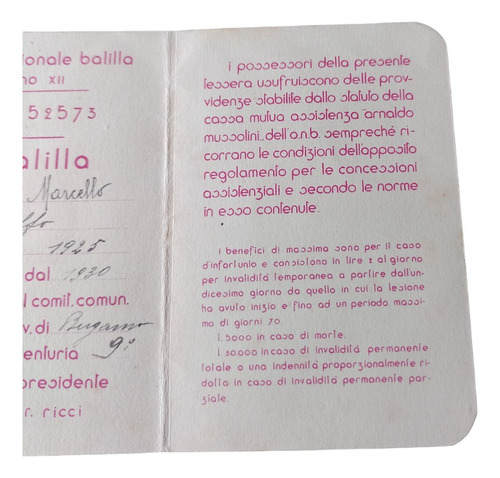 onale balilla
no XII
52573
alilla
Marcello
ffo
1925
dal 1930
l comit. comun.
v. di Bergamo
enturia 9º
presidente
r. ricci
i possessori della presente
tessera usufruiscono delle prov-
videnze stabilite dallo statuto della
cassa mutua assistenza arnaldo
mussolini dell'o.n.b. sempreché ri-
corrano le condizioni dell'apposito
regolamento per le concessioni
assistenziali e secondo le norme
in esso contenute.
i benefici di massima sono per il caso
d'infortunio e consistono in lire 2 al giorno
per invalidità temporanea a partire dall'un-
dicesimo giorno da quello in cui la lesione
ha avuto inizio e fino ad un periodo massi-
mo di giorni 70.
l. 5000 in caso di morte.
l. 30000 in caso di invalidità permanente
totale o una indennità proporzionalmente ri-
dotta in caso di invalidità permanente par-
ziale.